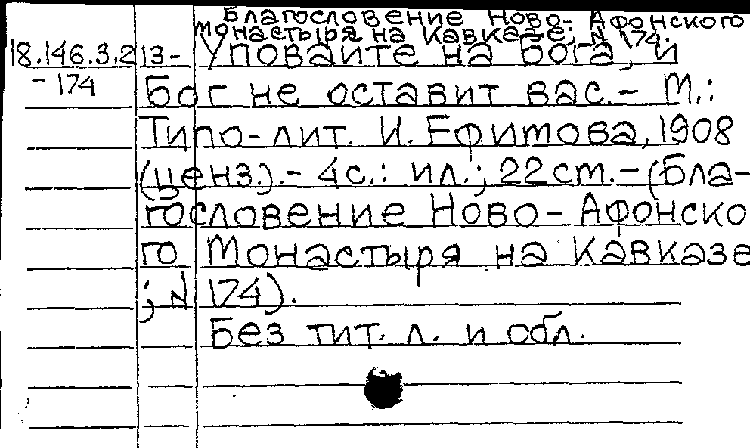 Благословение Ново-Афонского
монастыря на Кавказе; N 174.
18.146.3.2 13- Уповайте на Бога, и
-174 Бог не оставит вас.- М.:
Типо-лит. И. Ефимова, 1908
(ценз.).- 4с.: ил.; 22 см.-(Бла-
гословение Ново-Афонско
го Монастыря на Кавказе
; N 174).
Без тит. л. и обл.